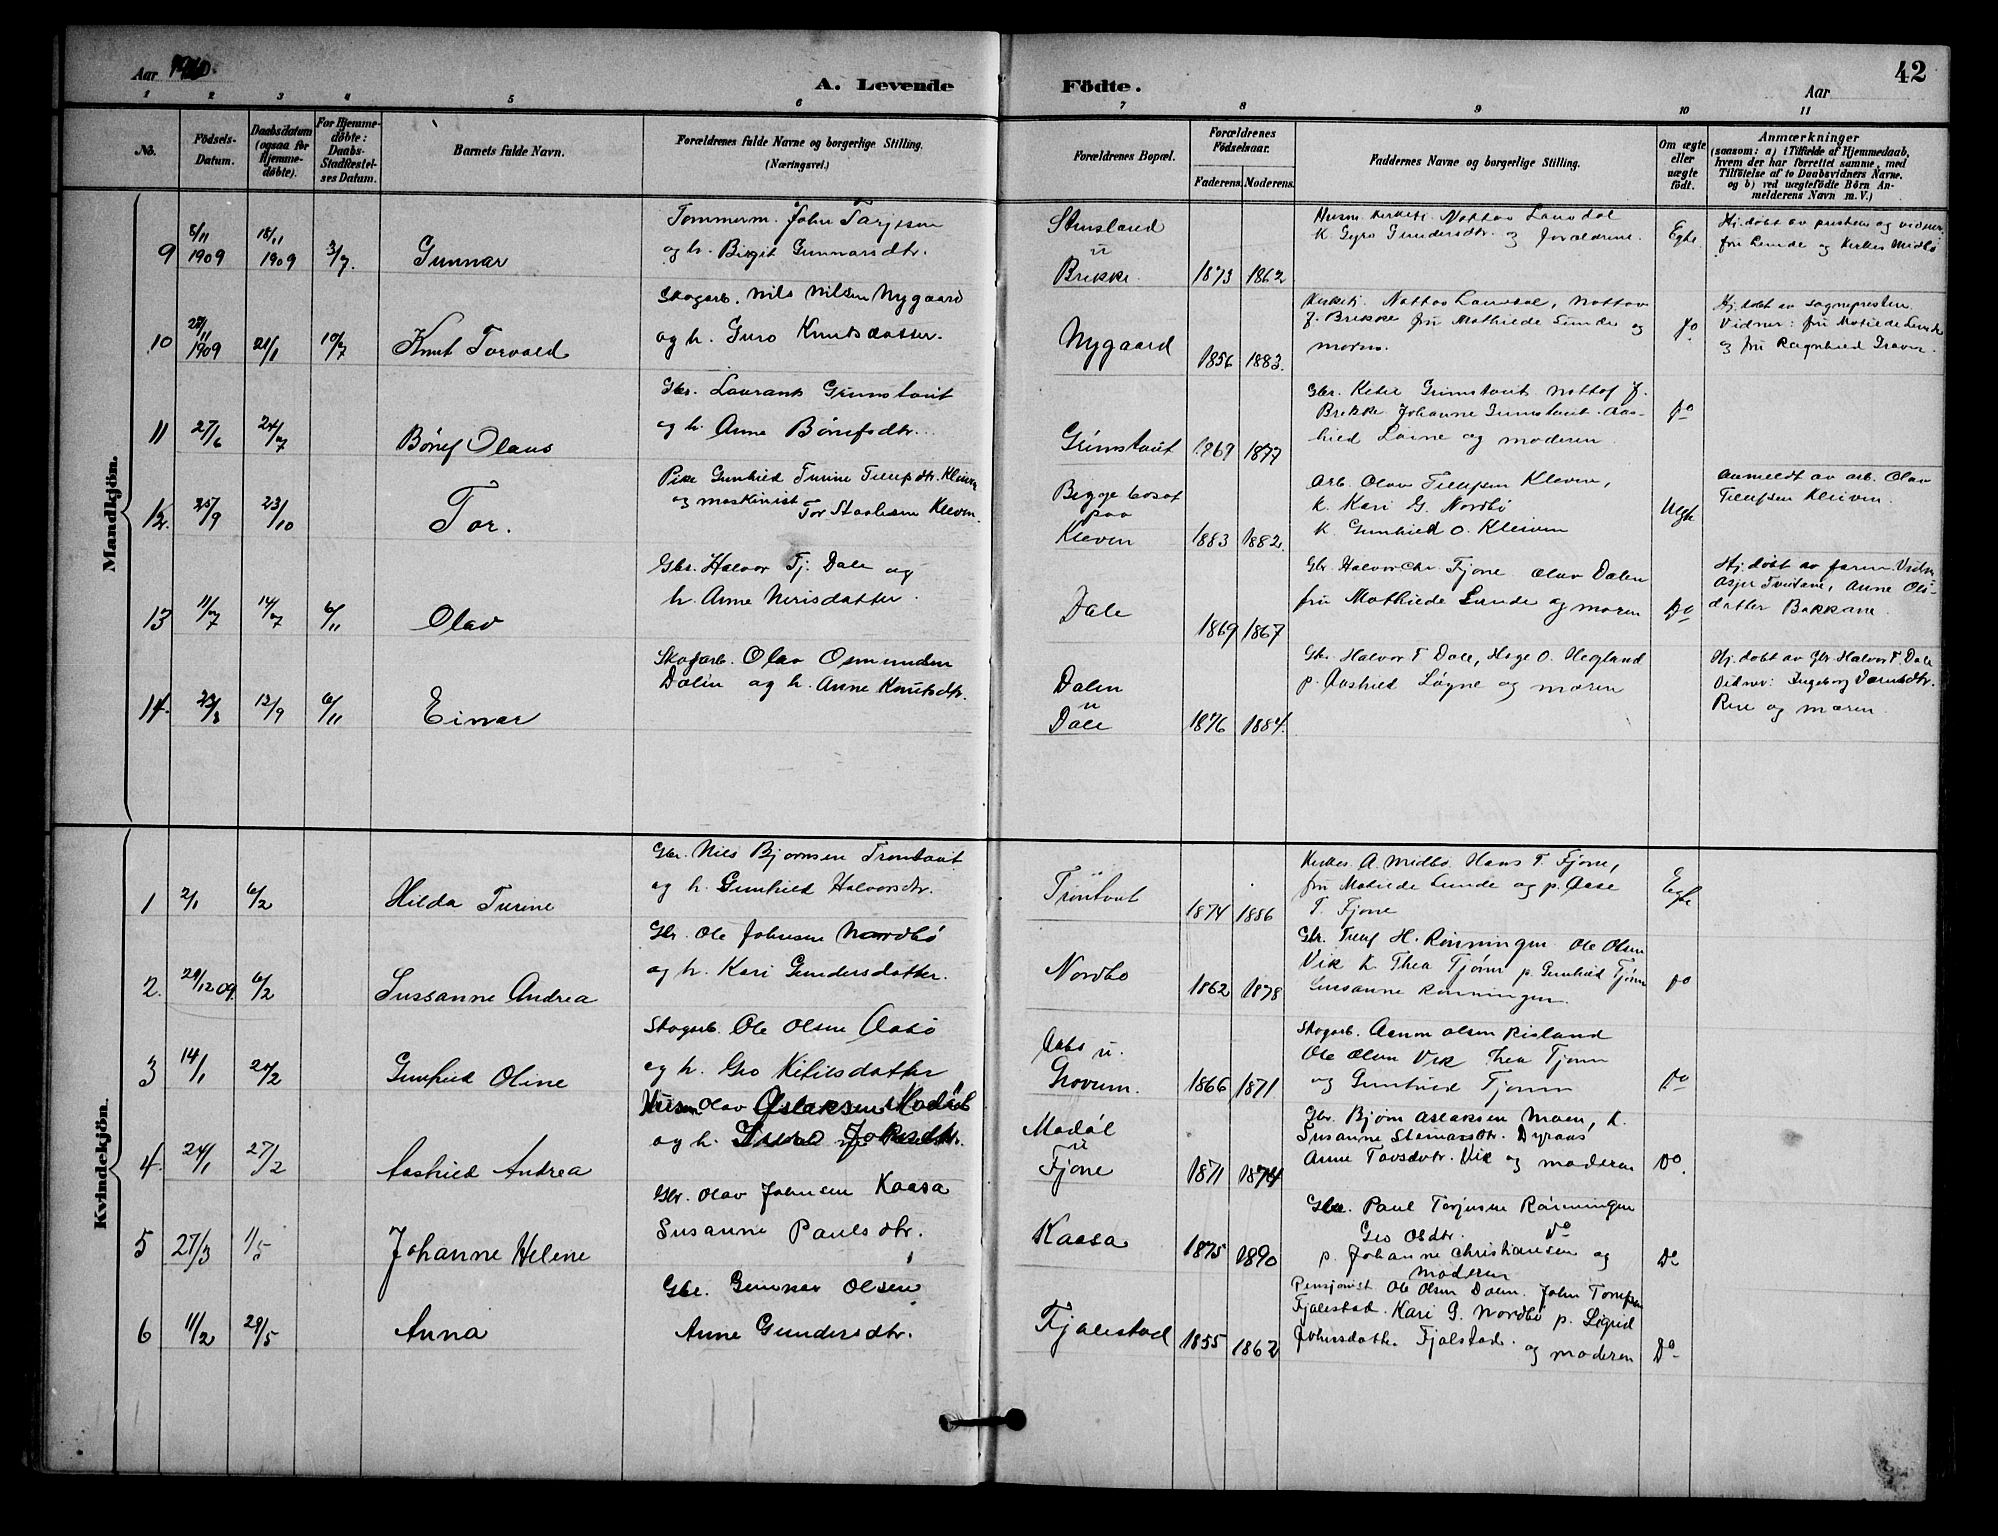 Aar 1910.
A. Levende
Födte.
Aar
42
1 2 3 4 5 6 7 8 9 10 11
No.
Födsels-
Datum.
Daabsdatum
(ogsaa for
Hjemme-
döbte).
For Hjemme-
döbte:
Daabs-
Stadfæstel-
ses Datum.
Barnets fulde Navn.
Forældrenes fulde Navne og borgerlige Stilling.
(Næringsvei.)
Forældrenes Bopæl.
Forældrenes
Födselsaar.
Faderens. Moderens.
Faddernes Navne og borgerlige Stilling.
Om ægte
eller
uægte
födt.
Anmærkninger
(saasom: a) i Tilfælde af Hjemmedaab,
hvem der har forrettet samme, med
Tilföielse af to Daabsvidners Navne.
og b) ved uægtefödte Börn An-
melderens Navn m. V.)
Mandkjön.
9 8/11 1909 18/11 1909 3/7. Gunnar
Tommerm. John Tarjesen
og h. Birgit Gunnarsdtr.
Stensland
u
Brekke. 1873 1862
K. Gyro Gundersdtr. og forældrene. Egte
Hj. døbt av presten og vidner
fru Lunde og Kirkes. Midbø
10 28/11 1909 21/1 10/7 Knut Torvald
Skogarb. Nils Nilsen Nygaard
og h. Guro Knutsdatter.
Nygaard 1856 1883.
Kirketj. Nottov Lausdal, Nottov
J. Brekke fru Mathilde Lunde og
moren. do
Hj. døbt av sognepresten
Vidner: fru Matilde Lunde
og fru Ragnhild Graver.
11 27/6 24/7 Børuf Olaus
Gbr. Laurants Grimstvut
og h. Anne Børufsdtr.
Grimstvut 1869 1877
Gbr. Ketil Grimstvut Nottof J.
Brekke Johanne Grimstvut. Aas-
hild Løine og moderen do
12. 25/9 23/10 Tor.
Pike Gunhild Turine Tellefsdtr. Kleiven
og maskinist Tor Staalesen Kleven.
Begge bosat
paa
Kleven 1883 1882.
Arb. Olav Tellefsen Kleven,
k. Kari G. Nordbø
k. Gunhild O. Kleiven Uegte
Anmeldt av arb. Olav
Tellefsen Kleiven.
13 11/7 14/7 6/11 Olav
Gbr. Halvor Tj. Dale og
h. Anne Nerisdatter.
Dale 1869 1867
Gbr. Halvor Chr. Fjone Olav Dalen
fru Mathilde Lunde og moren Do
Hj. døbt av faren. Vidner
Asjer Tvitane, Anne Ols-
datter Bakkane
14. 23/8 12/9 6/11 Einar
Skogarb. Olav Osmundsen
Dalen og h. Anne Knutsdtr.
Dalen
u
Dale 1876 1884.
Gbr. Halvor T. Dale, Hage O. Hegland
p. Aashild Løgne og moren
Hj. døbt av Gbr. Halvor T. Dale
Vidner: Ingeborg
og moren.
Kvindekjön.
1 2/1 6/2 Hilda Turine
Gbr. Nils Bjørnsen Trontvut
og h. Gunhild Halvorsdtr.
Trontvut 1874 1856
Kirkes. A. Midbø. Hans T. Fjone,
fru Matilde Lunde og p. Aase
T. Fjone Egte
2. 29/12 09. 6/2 Sussanne Andrea
Gbr. Ole Johnsen Nordbø
og h. Kari Gundersdatter.
Nordbo 1862 1878
Gbr. Tellef H. Rønningen Ole Olsen
Vik k. Thea Tjønn p. Gunhild Tjønn
Susanne Rønningen. do
3 14/1 20/2 Gunhild Oline
Skogarb. Ole Olsen Aabø
og h. Gro Kitilsdatter
Aabø u.
Grovum. 1866 1871
Skogarb. Aanon Olsen Risland
Ole Olsen Vik Thea Tjønn
og Gunhild Tjønn Do
4. 24/1 27/2 Aashild Andrea
Husm. Olav Aslaksen Modøl
og h. Guro Johnsdtr.
Modøl
u
Fjone 1871 1874
Gbr. Bjørn Aslaksen Moen, k.
Susanne Steinarsdtr. Dyraas
Anne Tovsdtr. Vik og moderen Do.
5 27/3 1/5 Johanne Helene
Gbr. Olav Johnsen Kaasa
Susanne Paulsdtr.
Kaasa 1875 1890
Gbr. Paul Torjusen Rønningen
Gro Olsdtr. do
p. Johanne Christiansen og
moderen Do
6 11/2 29/5 Anna
Gbr. Gunnar Olsen
Anne Gundersdtr.
Fjalestad 1855 1862
Pensjonist Ole Olsen Dalen. John
Fjalestad. Kari G. Nordbø p. Sigrid
Johnsdatter Fjalstad. og moderen Do